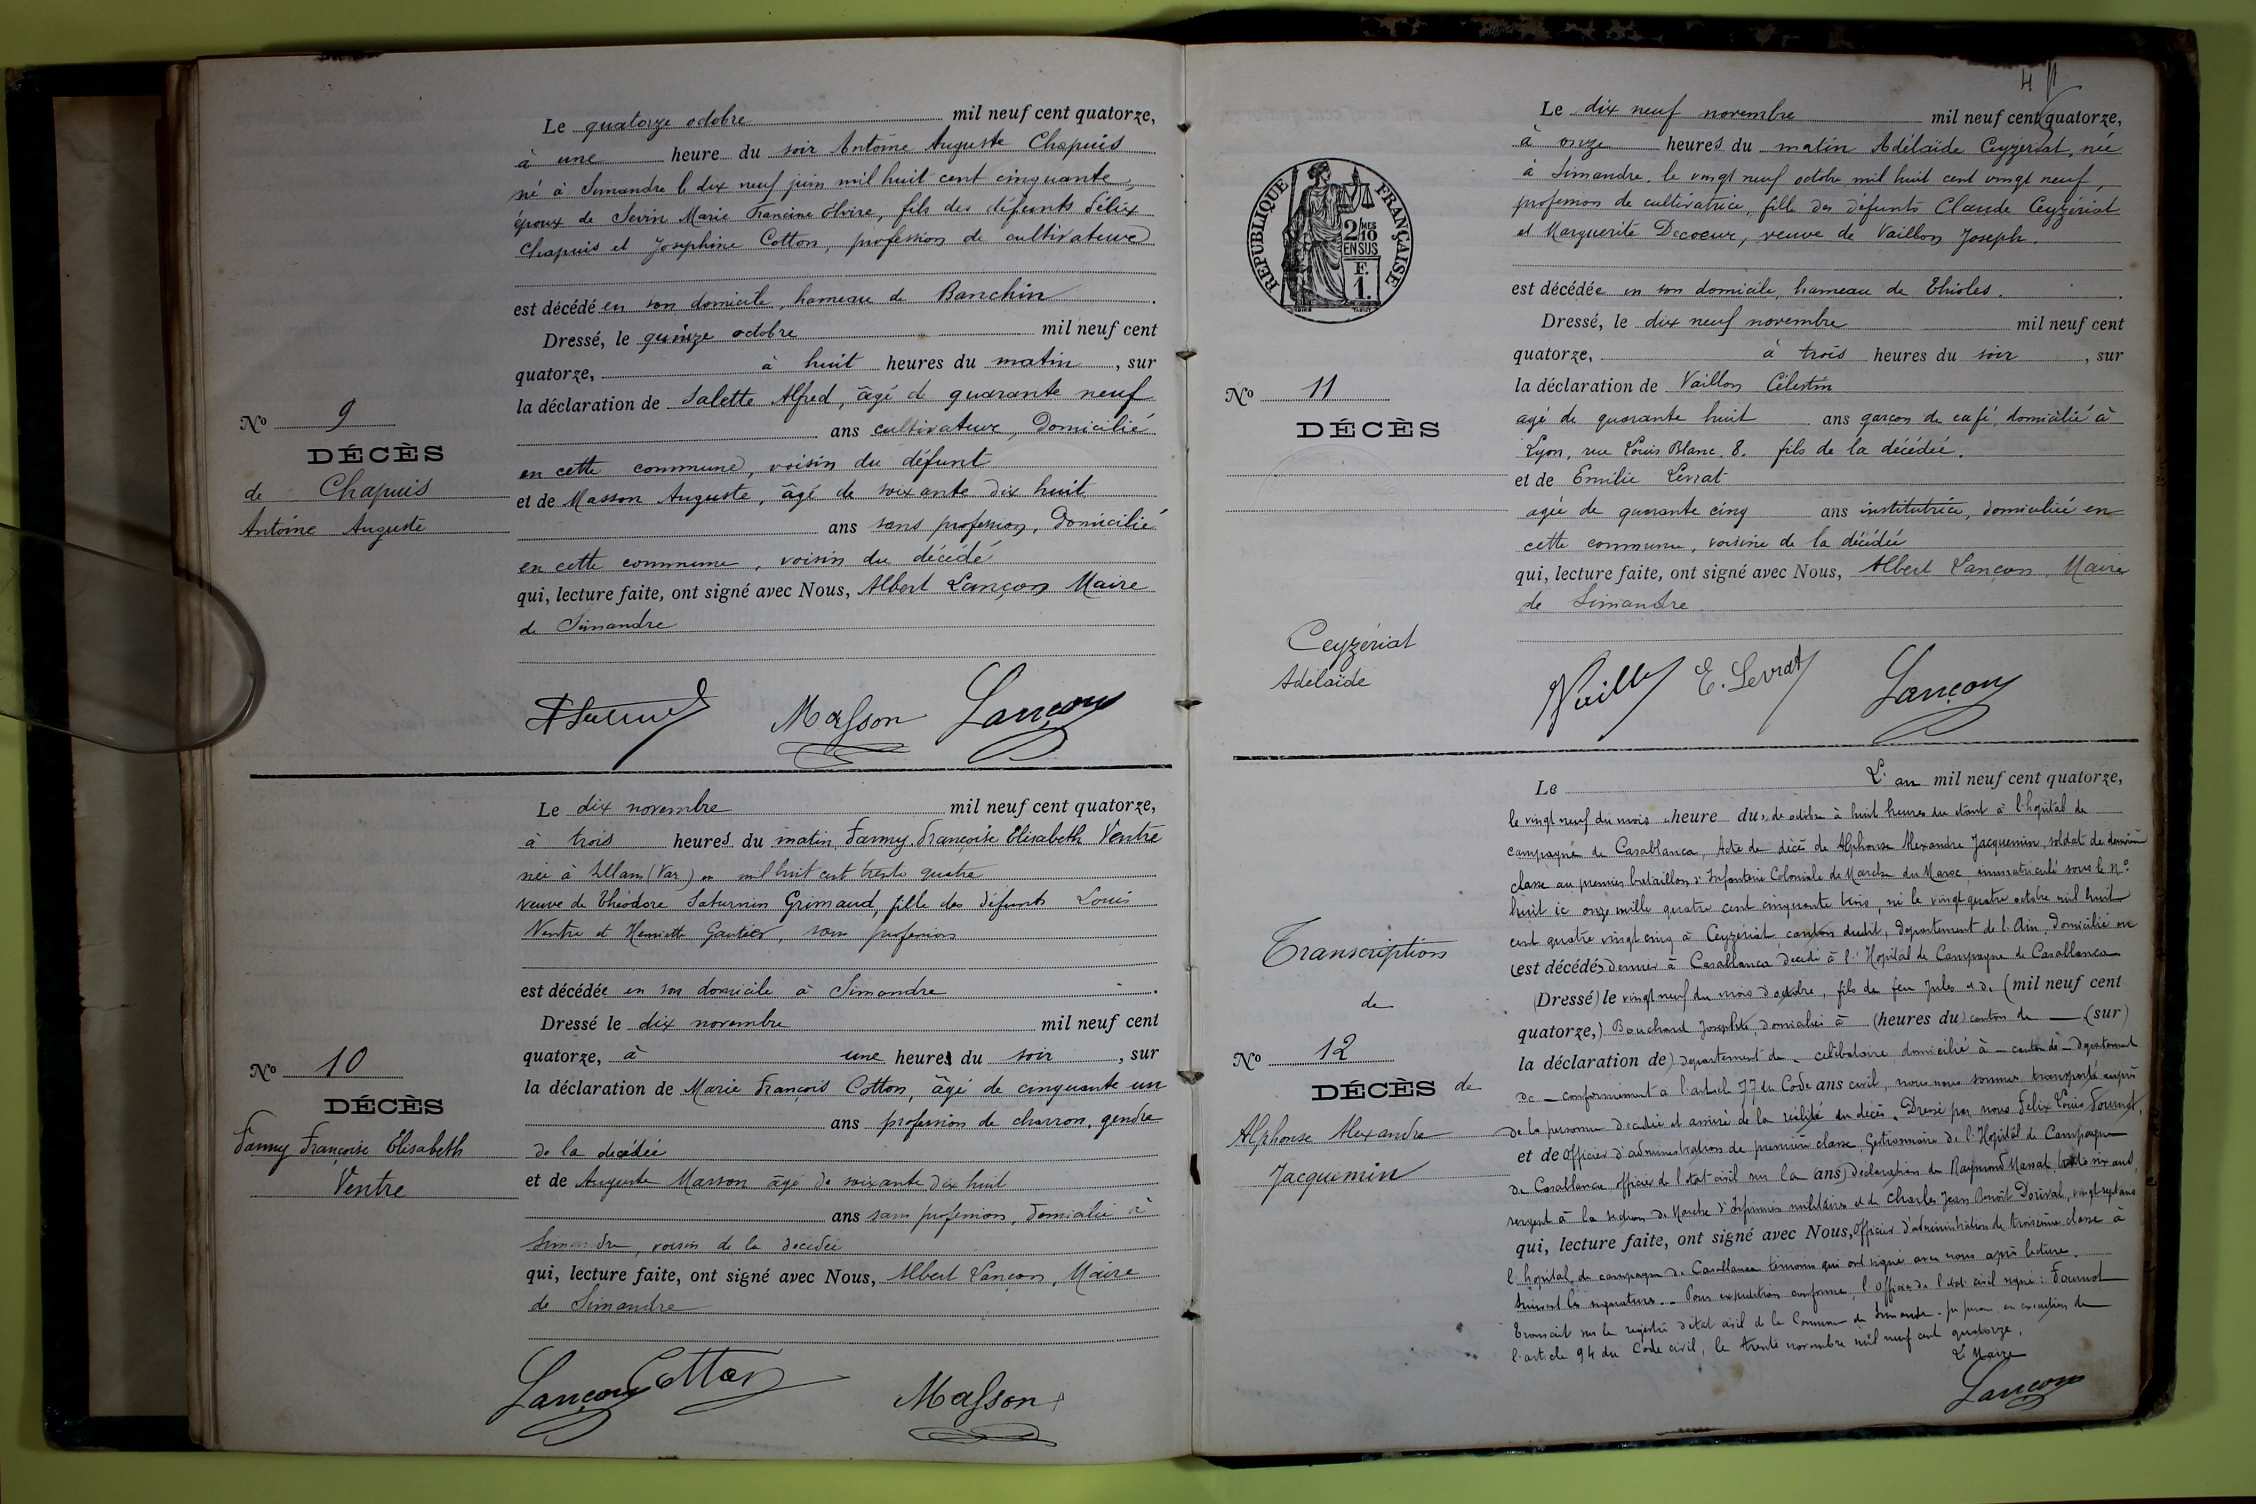 Le quatorze octobre mil neuf cent quatorze,
à une heure du soir Antoine Auguste Chapuis
né à Simandre le dix neuf juin mil huit cent cinquante,
époux de Sevin Marie Francine Elvire, fils des défunts Félix
Chapuis et Joséphine Cotton, profession de cultivateur
est décédé en son domicile, hameau de Banchin.
Dressé, le quinze octobre mil neuf cent
quatorze, à huit heures du matin, sur
la déclaration de Salette Alfred, âgé de quarante neuf
ans cultivateur, domicilié
en cette commune, voisin du défunt
et de Masson Auguste, âgé de soixante dix huit
ans sans profession, domicilié
en cette commune, voisin du décédé
qui, lecture faite, ont signé avec Nous, Albert Lançon Maire
de Simandre
No 9
DÉCÈS
de Chapuis
Antoine Auguste
Masson Lançon
Le dix novembre mil neuf cent quatorze,
à trois heures du matin, Fanny Françoise Elisabeth Ventre
née à (Var) en mil huit cent trente quatre
veuve de Théodore Saturnin Grimaud, fille des défunts Louis
Ventre et Henriette Gautier, sans profession
est décédée en son domicile à Simandre.
Dressé le dix novembre mil neuf cent
quatorze, à une heure du soir, sur
la déclaration de Marie François Cotton, âgé de cinquante un
ans profession de charron, gendre
de la décédée
et de Auguste Masson âgé de soixante dix huit
ans sans profession, domicilié à
Simandre, voisin de la décédée
qui, lecture faite, ont signé avec Nous, Albert Lançon, Maire
de Simandre
No 10
DÉCÈS
Fanny Françoise Elisabeth
Ventre
Lançon Cotton Masson
4
Le dix neuf novembre mil neuf cent quatorze,
à onze heures du matin Adélaïde Ceyzériat, née
à Simandre, le vingt neuf octobre mil huit cent vingt neuf,
profession de cultivatrice, fille des défunts Claude Ceyzériat
et Marguerite Decoeur, veuve de Vaillon Joseph.
est décédée en son domicile, hameau de Thioles.
Dressé, le dix neuf novembre mil neuf cent
quatorze, à trois heures du soir, sur
la déclaration de Vaillon Célestin
agé de quarante huit ans garçon de café, domicilié à
Lyon, rue Louis Blanc, 8. fils de la décédée.
et de Emilie Levrat
agée de quarante cinq ans institutrice, domiciliée en
cette commune, voisine de la décédée
qui, lecture faite, ont signé avec Nous, Albert Lançon, Maire
de Simandre
RÉPUBLIQUE FRANÇAISE
2/10 MES
EN SUS
F.
1.
No 11
DÉCÈS
Ceyzériat
Adélaïde
E. Levrat Lançon
Le L'an mil neuf cent quatorze,
le vingt neuf du mois heure du de octobre à huit heures du étant à l'hopital de
campagne de Casablanca, Acte de décès de Alphonse Alexandre Jacquemin, soldat de deuxième
classe au premier bataillon d'Infanterie Coloniale de Marche du Maroc, immatriculé sous le No
huit ic onze mille quatre cent cinquante trois, né le vingt quatre octobre mil huit
cent quatre vingt cinq à Ceyzériat, canton dudit, département de l'Ain, domicilié en
(est décédé) dernier à Casablanca décédé à l'Hopital de Campagne de Casablanca
(Dressé) le vingt neuf du mois d'octobre, fils de feu Jules et de (mil neuf cent
quatorze,) Bouchard Josephte domiciliés à (heures du) canton de — (sur)
la déclaration de) département de célibataire domicilié à — canton de — département
de — conformément à l'article 77 du Code ans civil, nous nous sommes transporté auprès
de la personne décédée et assuré de la réalité du décès. Dressé par nous Félix Louis Fournot,
et de Officier d'administration de première classe, Gestionnaire de l'Hopital de Campagne
de Casablanca officier de l'état civil sur la (ans) déclaration de Raymond Massat, trente six ans,
sergent à la section de Marche d'Infirmiers militaires et de Charles Jean Benoît Dorival, vingt sept ans
qui, lecture faite, ont signé avec Nous, Officier d'administration de troisième classe à
l'hopital de campagne de Casablanca témoins qui ont signé avec nous après lecture.
Suivent les signatures. Pour expédition conforme, l'Officier de l'état civil signé : Fournot
Transcrit sur le registre d'état civil de la Commune de Simandre en exécution de
l'article 94 du Code civil, le trente novembre mil neuf cent quatorze.
Le Maire
Lançon
Transcription
de
No 12
DÉCÈS de
Alphonse Alexandre
Jacquemin